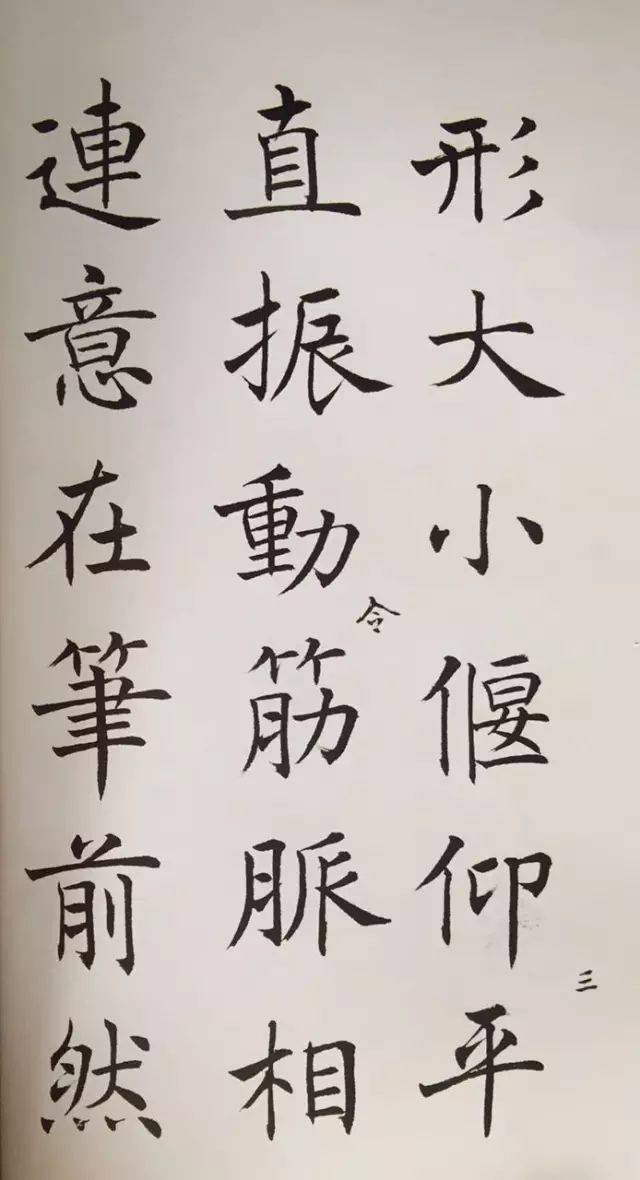 形大小偃仰平三
直振動令筋脈相
連意在筆前然